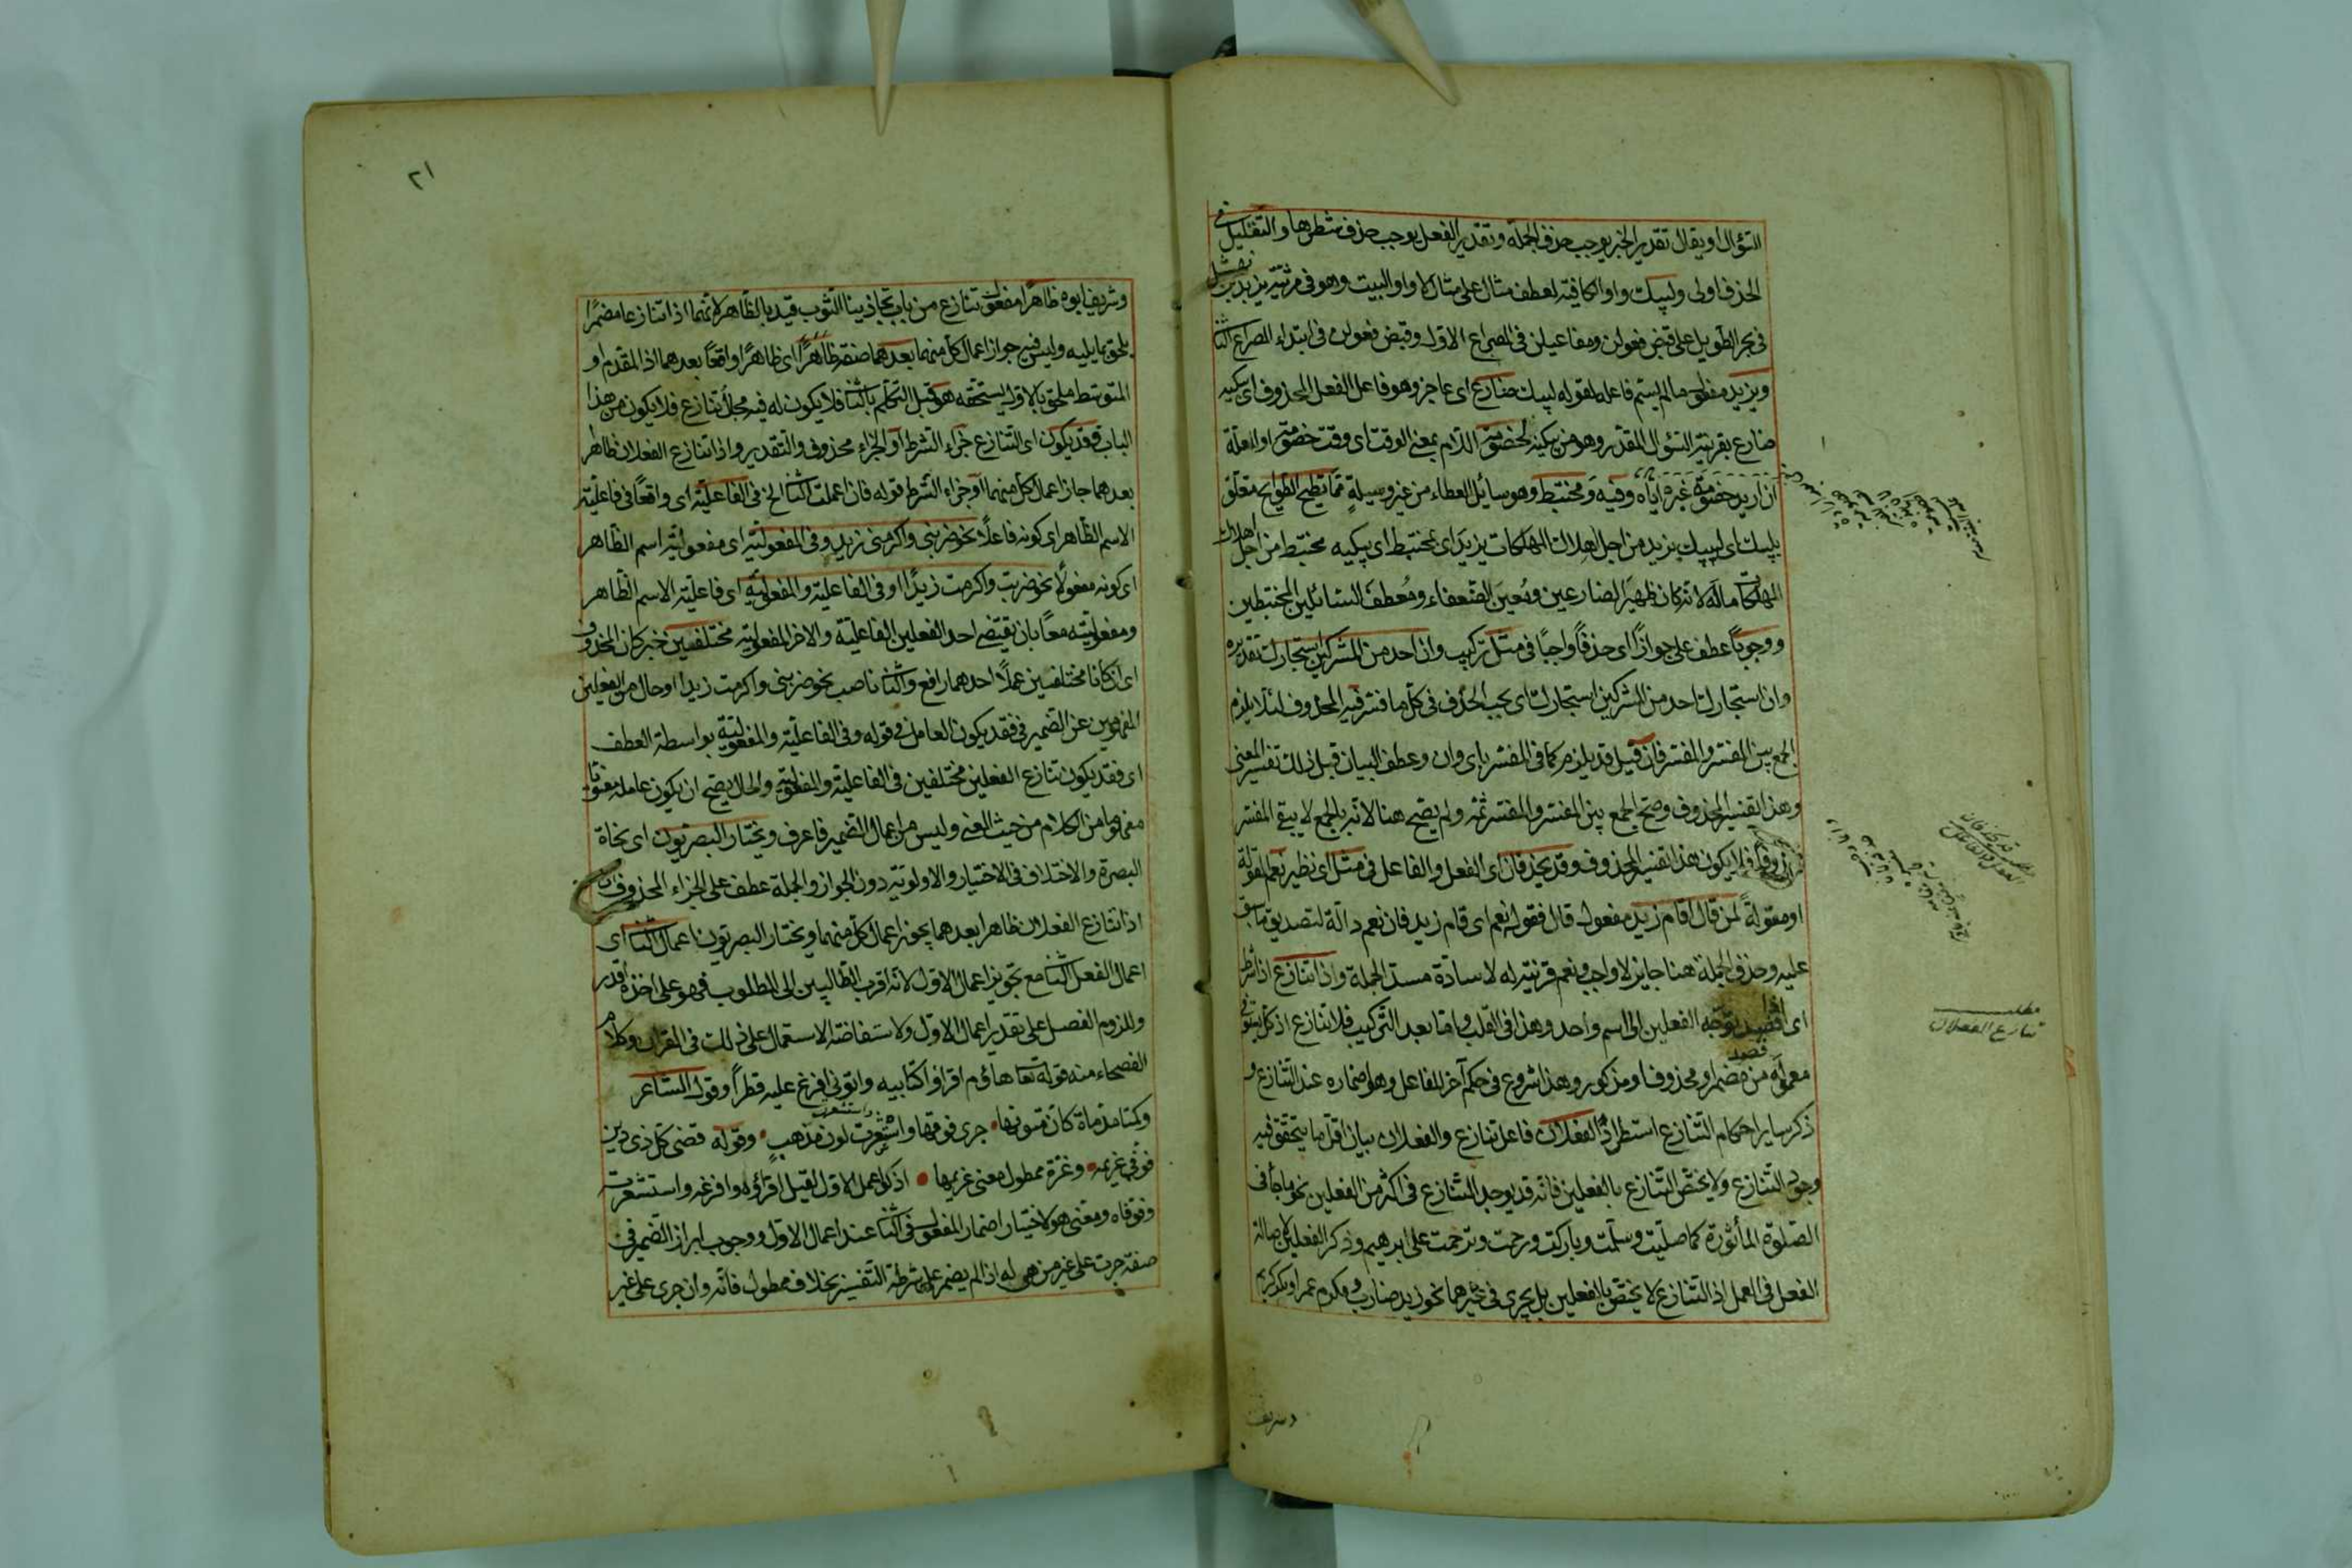 السؤال او يقال تقدير الخبر يوجب حذف الجملة وتقدير الفعل يوجب حذف شطرها والتقليل في
الحذف اولى وليبك واو الكافية لعطف مثال على مثال لا واو البيت وهو في مرثية يزيد بن نهشل
في بحر الطويل على قبض فعولن ومفاعيلن في المصراع الاول وقبض فعولن في ابتداء المصراع الثا
ويزيد مفعول ما لم يسم فاعله لقوله ليبك ضارع اى عاجز وهو فاعل الفعل المحذوف اى يبكيه
ضارع بقرينة السؤال المقدر وهو من يبكيه لخصومة اللام بمعنى الوقت اى وقت خصومة او العلة
ان اريد خصومة غيره اياه وفيه ومختبط وهو سائل العطاء من غير وسيلة مما تطيح الطوايح متعلق
بليبك اى ليبك يزيد من اجل اهلاك المهلكات يزيد اى بمختبط اى يبكيه مختبط من اجل اهلاك
المهلكات ماله لانه كان ظهير الضارعين ومعين الضعفاء ومعطف السائلين المختبطين
ووجوبا عطف على جوازا اى حذفا واجبا في مثل تركيب وان احد من المشركين استجارك تقديره
وان استجارك احد من المشركين استجارك اى يجب الحذف في كل ما فسر فيه المحذوف لئلا يلزم
الجمع بين المفسر والمفسر فان قيل قد يلزم كما في المفسر باى وان وعطف البيان قيل ذلك تفسير المعنى
وهذا تفسير المحذوف وصح الجمع بين المفسر والمفسر ثمه ولم يصح هنا لانه بالجمع لا يبقى المفسر
محذوفا فلا يكون هذا تفسير المحذوف وقد يحذفان اى الفعل والفاعل في مثل اى نظير نعم لقوله
او مقولة لمن قال اقام زيد مفعول قال فقوله نعم اى قام زيد فان نعم دالة لتصديق ما سبق
عليه وحذف الجملة هنا جايز لا واجب ونعم قرينة له لا سادة مسد الجملة واذا تنازع اذا شرط
اى اذا قصد توجه الفعلين الى اسم واحد وهذا في القلب واما بعد التركيب فلا تنازع اذ كل يستوفي
معموله من مضمر او محذوف او مذكور وهذا شروع في حكم آخر للفاعل وهو اضماره عند التنازع و
ذكر ساير احكام التنازع استطراد الفعلان فاعل تنازع والفعلان بيان اقل ما يتحقق فيه
وجود التنازع ولا يختص التنازع بالفعلين فانه قد يوجد التنازع في اكثر من الفعلين نحو ما جأ في
الصلوة المأثورة كما صليت وسلمت وباركت ورحمت وترحمت على ابرهيم وذكر الفعلين لاصالة
الفعل في العمل اذ التنازع لا يختص بالفعلين بل يجرى في غيرهما نحو زيد ضارب ومكرم عمرا وبكر كريم
وشريف
مطلب
تنازع الفعلان
٢١
وشريف ابوه ظاهرا مفعول تنازع من باب تجاذبنا الثوب قيد بالظاهر لانهما اذا تنازعا مضمرا
يلحق بما يليه وليس فيه جواز اعمال كل منهما بعدهما صفة ظاهرا اى ظاهرا واقعا بعدهما اذ المقدم او
المتوسط ملحق بالاول يستحقه هو قبل التكلم بالثا فلا يكون له فيه مجال تنازع فلا يكون من هذا
الباب فقد يكون اى التنازع جزاء الشرط او الجزاء محذوف والتقدير واذا تنازع الفعلان ظاهرا
بعدهما جاز اعمال كل منهما او جزاء الشرط قوله فان اعملت الثا الخ في الفاعلية اى واقعا في فاعلية
الاسم الظاهر اى كونه فاعلا نحو ضربني واكرمني زيد وفي المفعولية اى مفعولية اسم الظاهر
اى كونه مفعولا نحو ضربت واكرمت زيدا او في الفاعلية والمفعولية اى فاعلية الاسم الظاهر
ومفعوليته معا بان يقتضى احد الفعلين الفاعلية والاخر المفعولية مختلفين خبر كان المحذوف
اى ان كانا مختلفين عملا احدهما رافع والثا ناصب نحو ضربني واكرمت زيدا او حال من الفعلين
المفهومين عن الضمير في فقد يكون العامل في قوله وفي الفاعلية والمفعولية بواسطة العطف
اى فقد يكون تنازع الفعلين مختلفين في الفاعلية والمفعولية والحال يصح ان يكون عامله معنويا
مفهوما من الكلام من حيث المعنى وليس من اعمال الضمير فاعرف ويختار البصريون اى نحاة
البصرة والاختلاف في الاختيار والاولوية دون الجواز والجملة عطف على الجزاء المحذوف اى
اذا تنازع الفعلان ظاهرا بعدهما يجوز اعمال كل منهما ويختار البصريون اعمال الثا اى
اعمال الفعل الثا مع تجويز اعمال الاول لانه اقرب الطالبين الى المطلوب فهو على اخذه اقدر
وللزوم الفصل على تقدير اعمال الاول ولاستفاضة الاستعمال على ذلك في القران وكلام
الفصحاء منه قوله تعا هاؤم اقرؤا كتابيه واتوني افرغ عليه قطرا وقول الشاعر
وكمتا مدماة كأن متونها جرى فوقها واستشعرت لون مذهب وقوله قضى كل ذي دين
فوفى غريمه وعزة ممطول معنى غريمها اذ لو اعمل الاول لقيل اقرؤه وافرغه واستشعرت
وفوفاه ومعنى هو لاختيار اضمار المفعول في الثا عند اعمال الاول ووجوب ابراز الضمير في
صفة جرت على غير من هي له اذا لم يضمر على شرطة التفسير بخلاف ممطول فانه وان جرى على غير